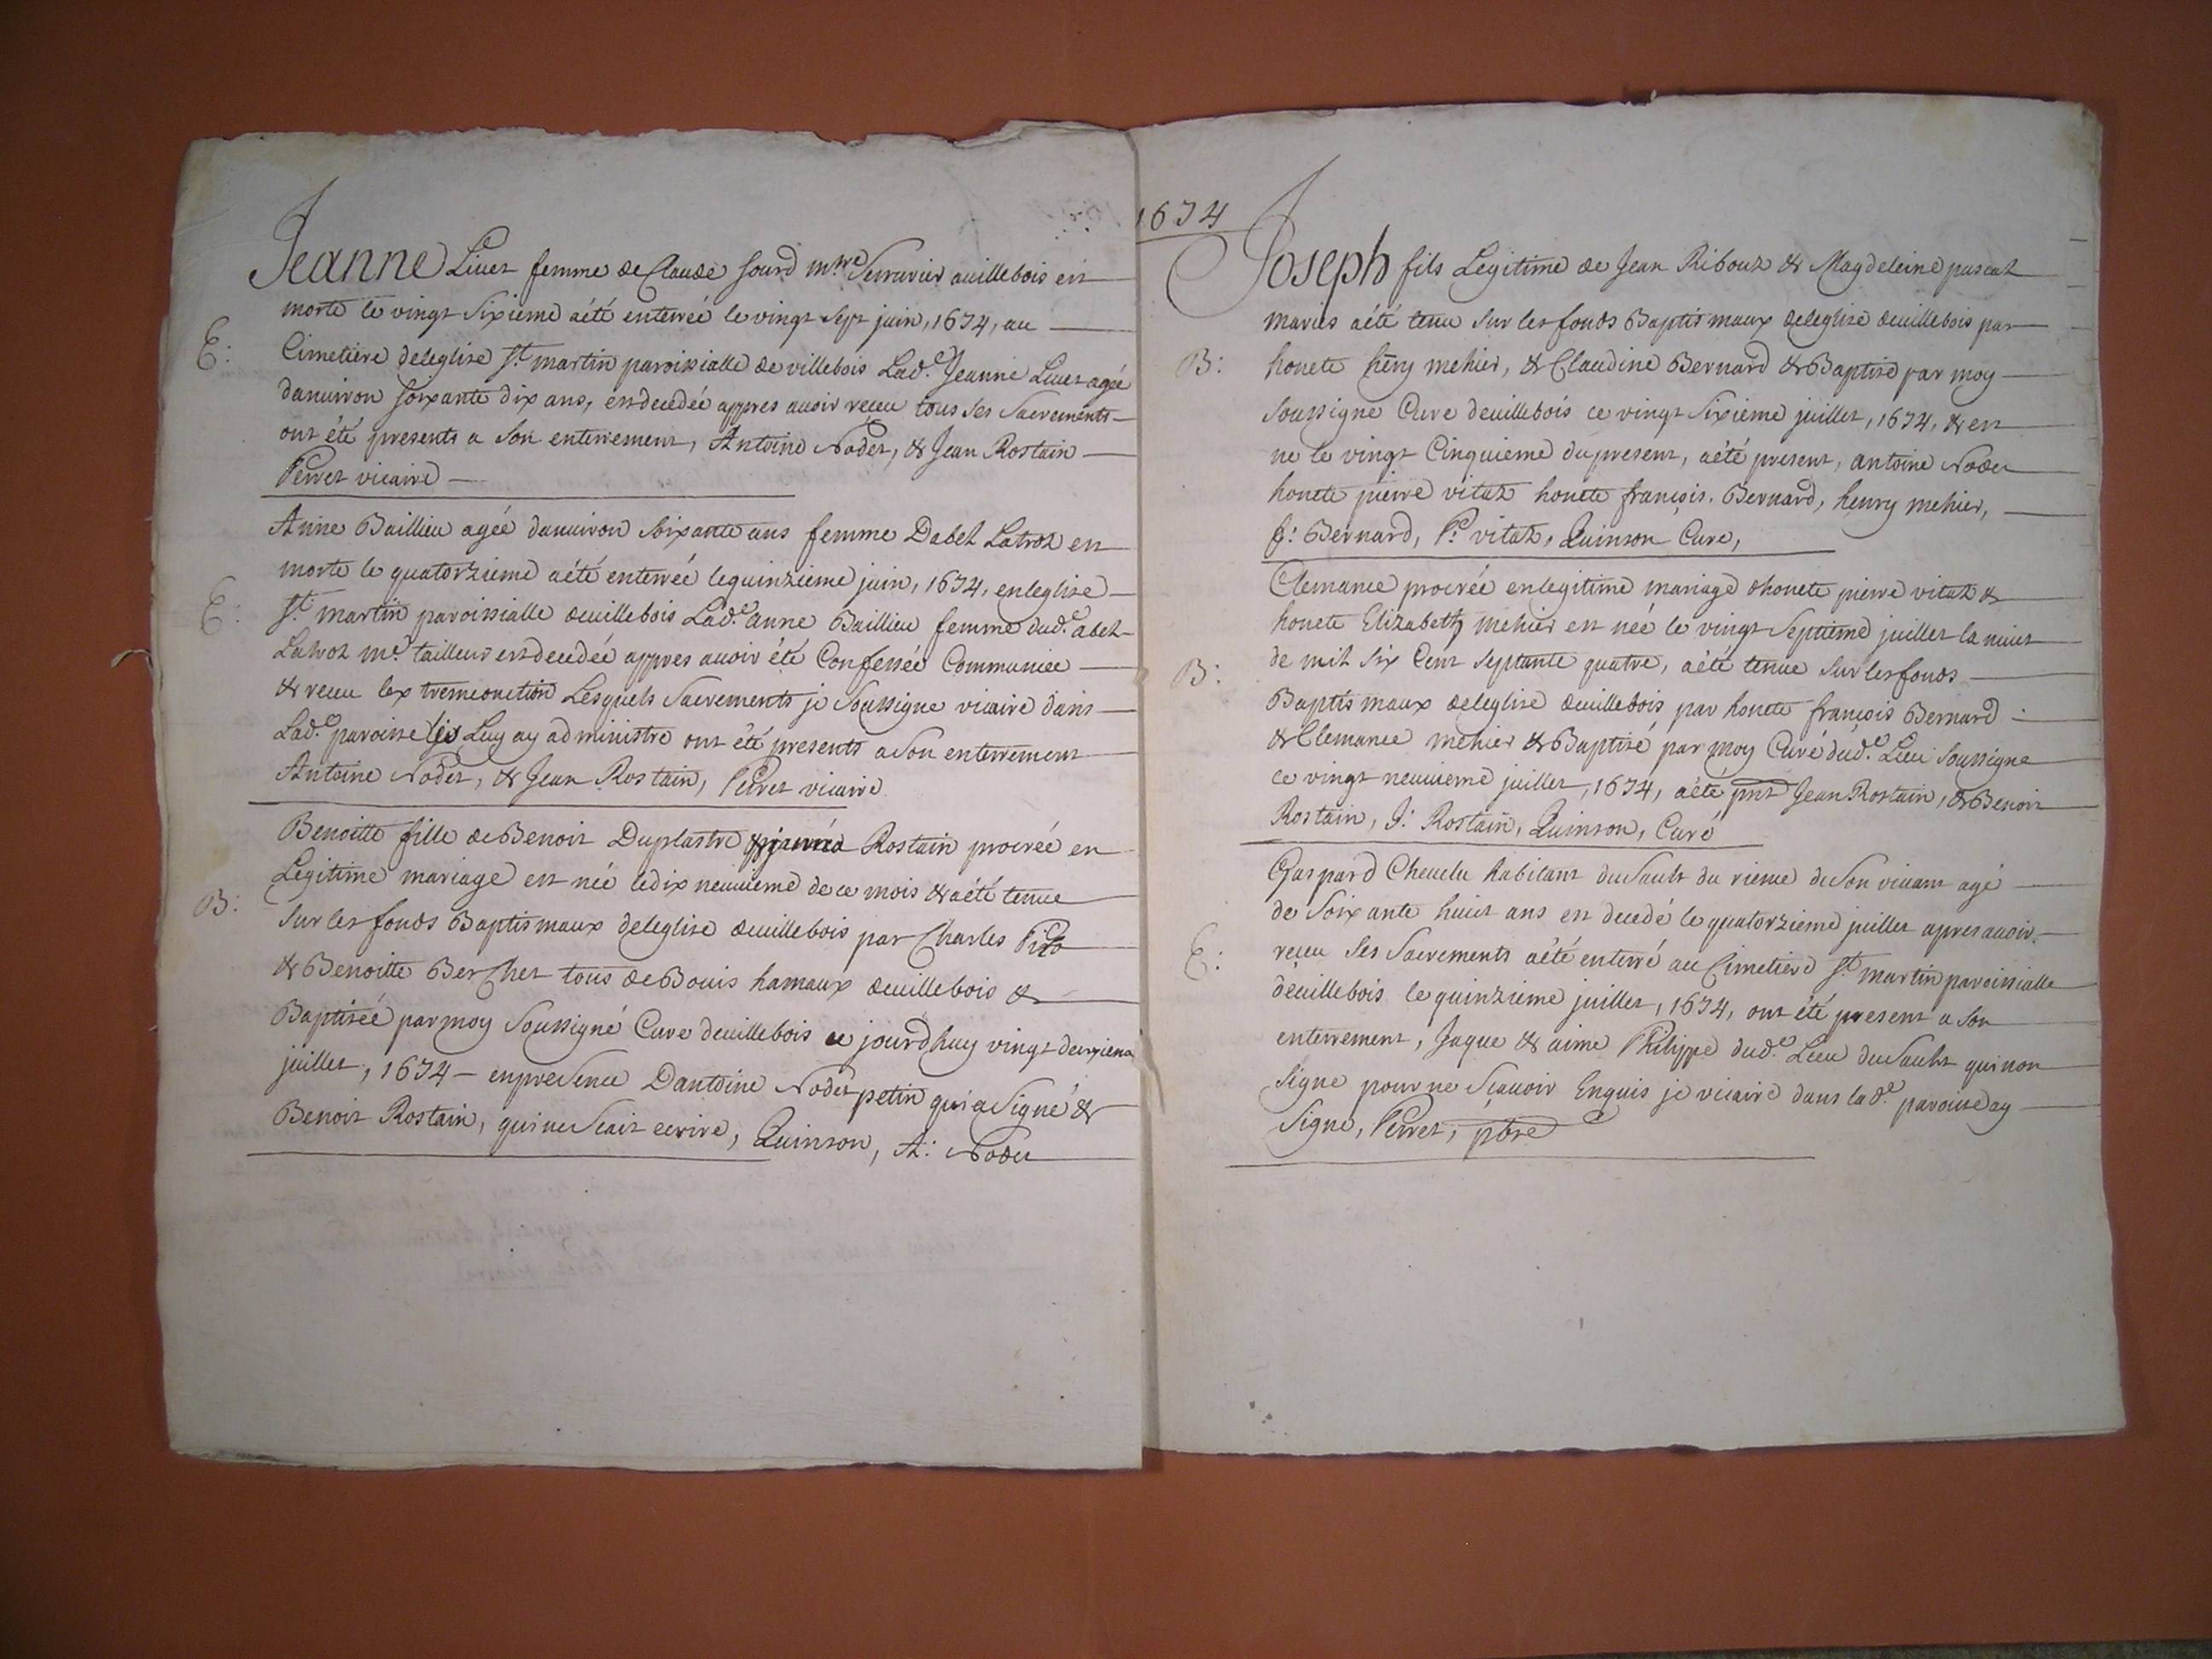 1674
Jeanne Liuet femme de Claude Sourd mtre Serrurier auillebois est
morte le vingt Sixieme aété enterrée le vingt Sept juin, 1674, au
E: Cimetiere deleglise St martin paroissialle de villebois Lade Jeanne Liuet agée
danuiron Soixante dix ans, est decedée appres auoir receu tous ses Sacrements
ont été presents a Son enterrement, Antoine Nodet, & Jean Rostain
Perret vicaire
Anne Baillieu agée danuiron Soixante ans femme Dabel Latrot est
morte le quatorzieme aété enterrée lequinzieme juin, 1674, enleglise
E: St martin paroissialle deuillebois Lade anne Baillieu femme dude abel
Latrot me tailleur est decedée appres auoir été Confessée Communiée
& receu lextremeonction Lesquels Sacrements je Soussigne vicaire dans
Lade paroisse Luy ay administre ont été presents a Son enterrement
Antoine Nodet, & Jean Rostain, Perret vicaire
Benoitte fille de Benoit Duplastre Rostain procrée en
Legitime mariage est née ledix neuuieme de ce mois & aété tenue
B: Sur les fonds Baptismaux deleglise deuillebois par Charles
& Benoitte Berchet tous de Bouis hamaux deuillebois &
Baptisée par moy Soussigné Cure deuillebois ce jourdhuy vingt deuxieme
juillet, 1674 – enpresence Dantoine Nodet petin qui a Signé &
Benoit Rostain, qui ne Scait ecrire, Quinson, A: Nodet
Joseph fils Legitime de Jean Ribout & Magdeleine pascal
maries aété tenu Sur les fonds Baptismaux deleglise deuillebois par
B: honete hēry mehier, & Claudine Bernard & Baptise par moy
Soussigne Cure deuillebois ce vingt Sixieme juillet, 1674, & est
ne le vingt Cinquieme du present, aété present, antoine Nodet
honete pierre vital honete françois Bernard, henry mehier,
f: Bernard, P: vital, Quinson Cure,
Clemance procrée enlegitime mariage dhonete pierre vital &
honete Elizabeth mehier est née le vingt Septieme juillet la nuit
B: de mil Six Cent Septante quatre, aété tenue Sur les fonds
Baptismaux deleglise deuillebois par honete françois Bernard
& Clemance mehier & Baptisé par moy Curé dude Lieu Soussigne
ce vingt neuuieme juillet, 1674, aété pnt Jean Rostain, & Benoit
Rostain, J: Rostain, Quinson, Curé
Gaspard Cheuelu habitant duSault du rieme deSon viuant agé
de Soixante huit ans est decedé le quatorzieme juillet apres auoir
E: receu Ses Sacrements aété enterré au Cimetiere St martin paroissialle
deuillebois le quinzieme juillet, 1674, ont été present a Son
enterrement, Jaque & aime Philippe dude Lieu duSault qui non
Signe pour ne Scauoir Enquis je vicaire dans lade paroisse ay
Signe, Perret, pbre